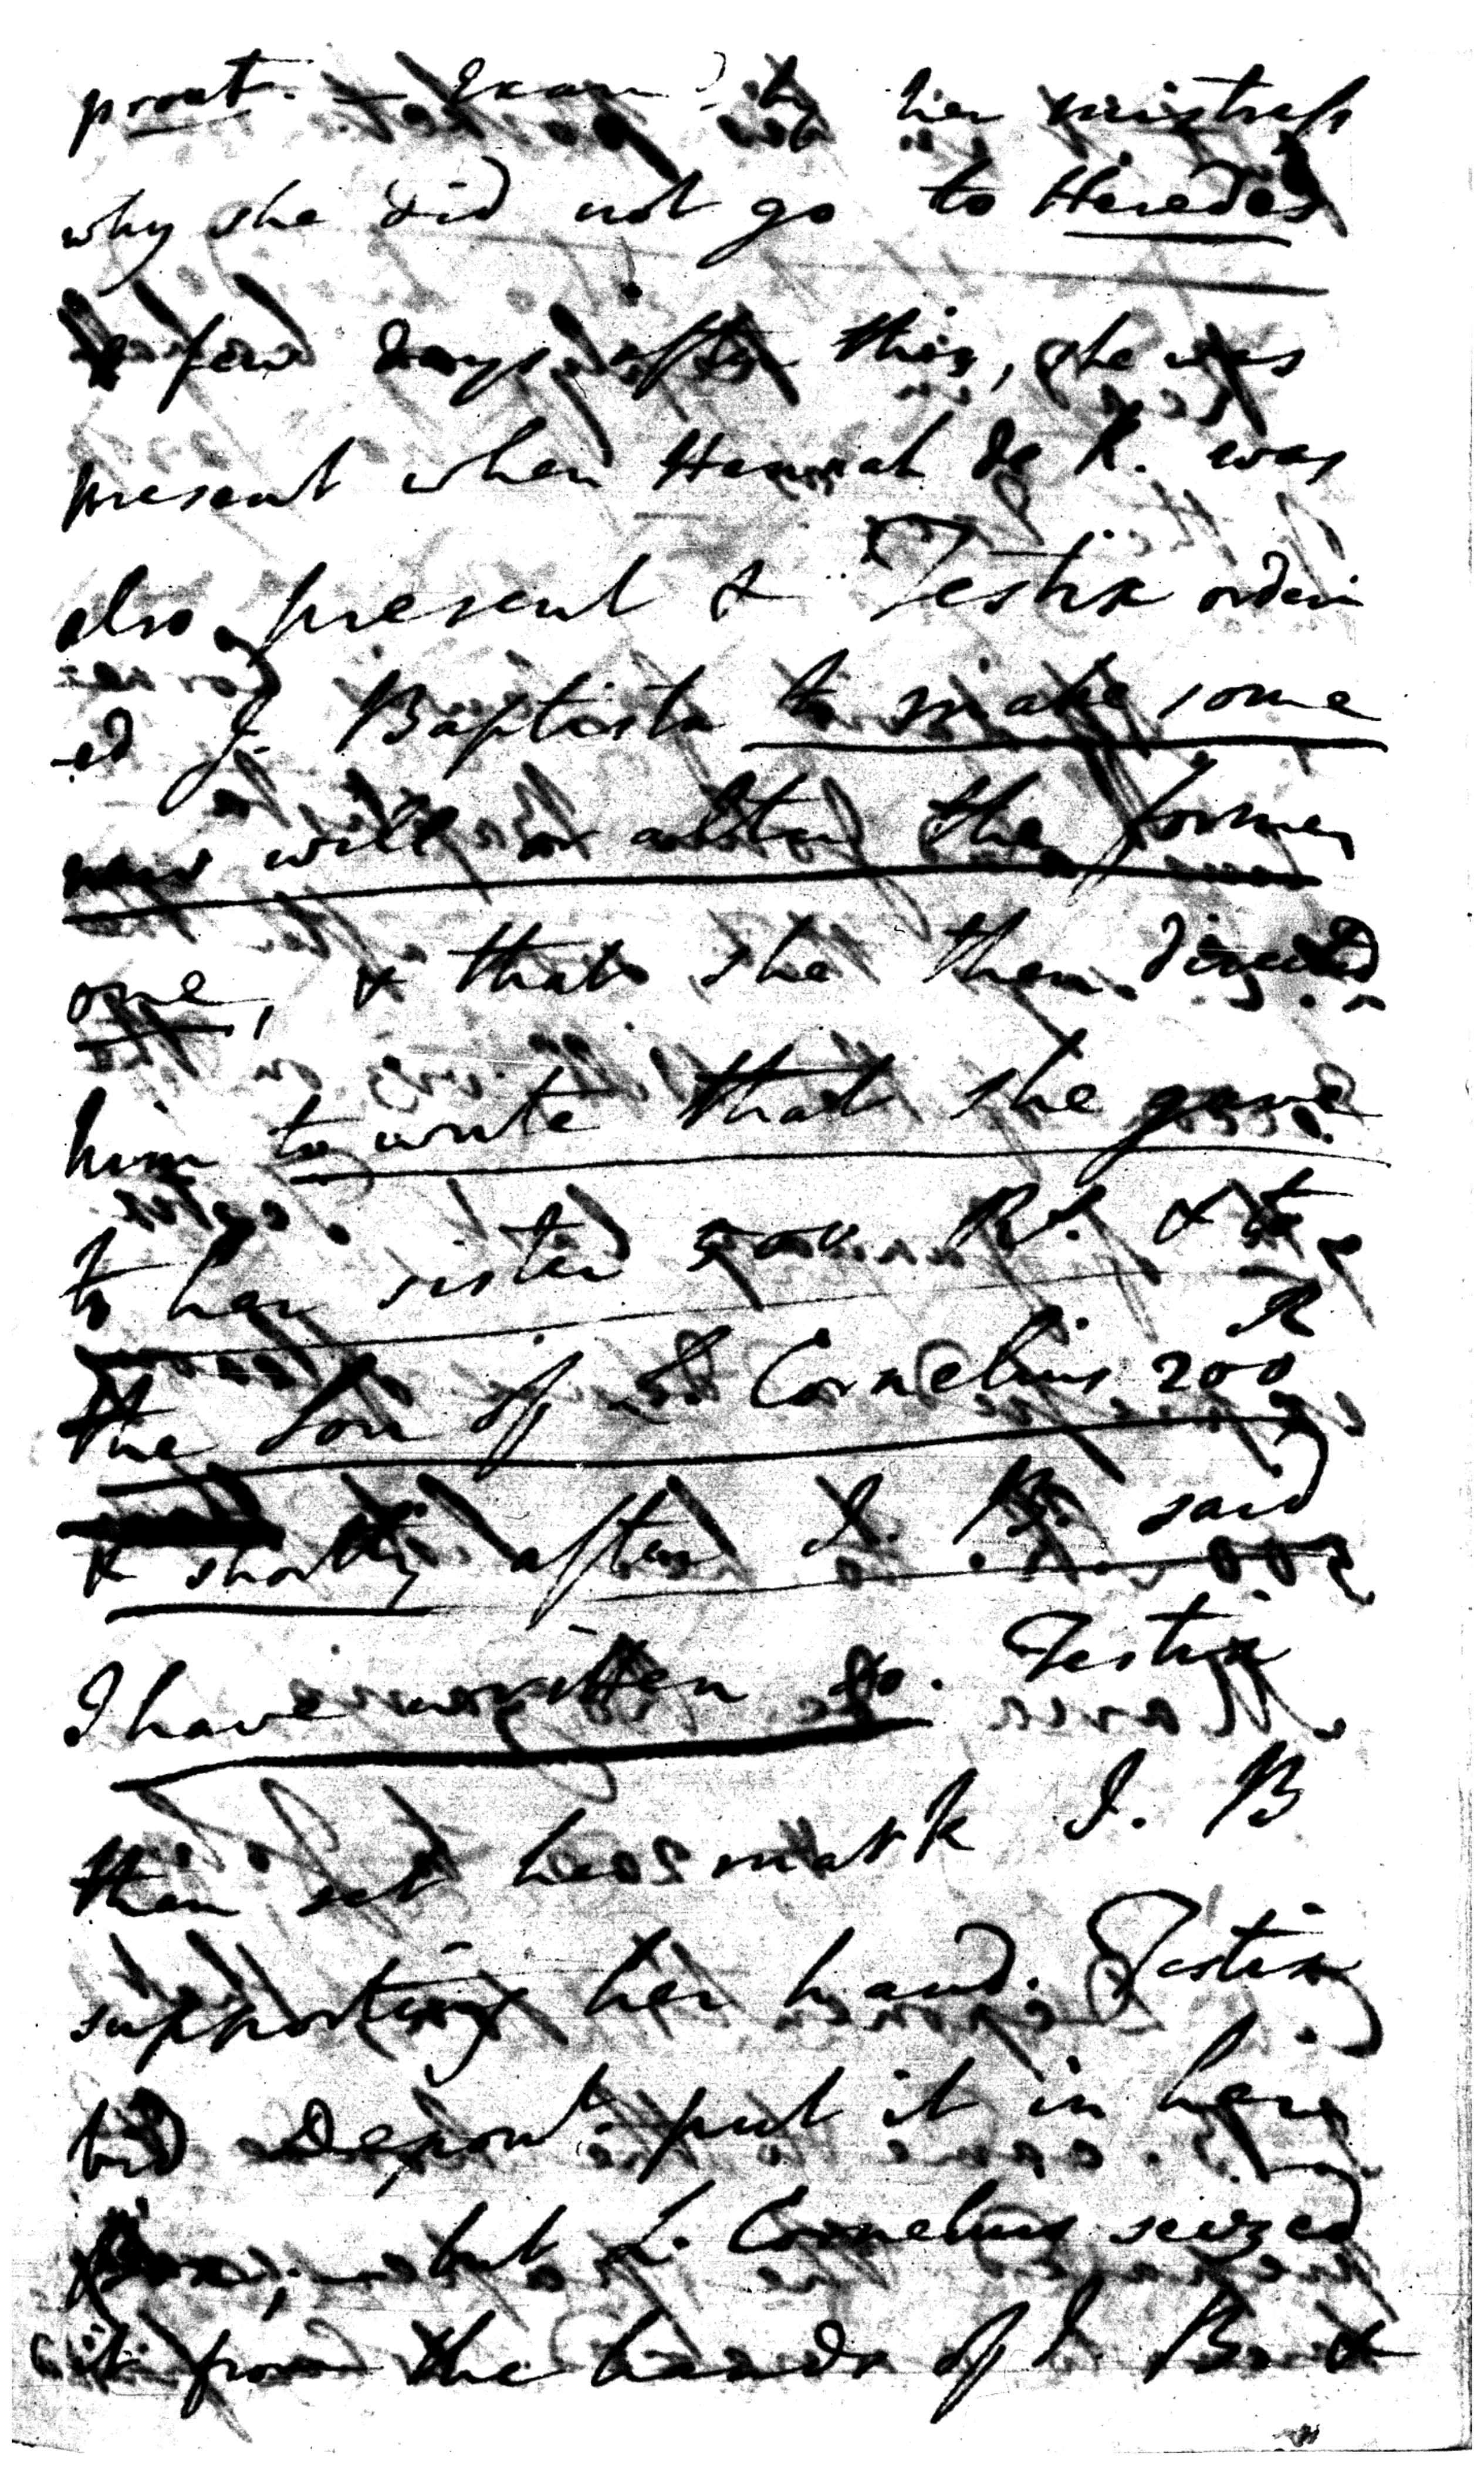 prout. — Exam? by her mistress
why she did not go to Heredes
A few days after this, she was
present when Hannah de K. was
also present & Testrix order
-ed J. Baptista to make some
new will or alter the former
one, & that she then directed
him to write that she gave
to her sister 500 Rs. & to
the son of L. Cornelius 200 R
& shortly after J. B. said
I have written so. Testrix
then set her mark J. B
supporting her hand. Testrix
bid Depont put it in her
Box, but L. Cornelius seized
it from the hands of J. B. &